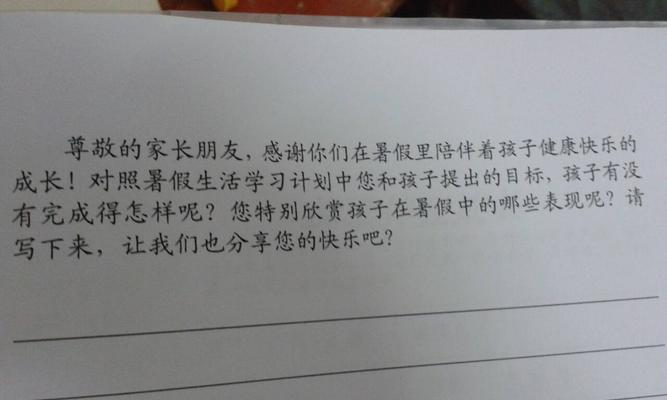 尊敬的家长朋友，感谢你们在暑假里陪伴着孩子健康快乐的
成长！对照暑假生活学习计划中您和孩子提出的目标，孩子有没
有完成得怎样呢？您特别欣赏孩子在暑假中的哪些表现呢？请
写下来，让我们也分享您的快乐吧？